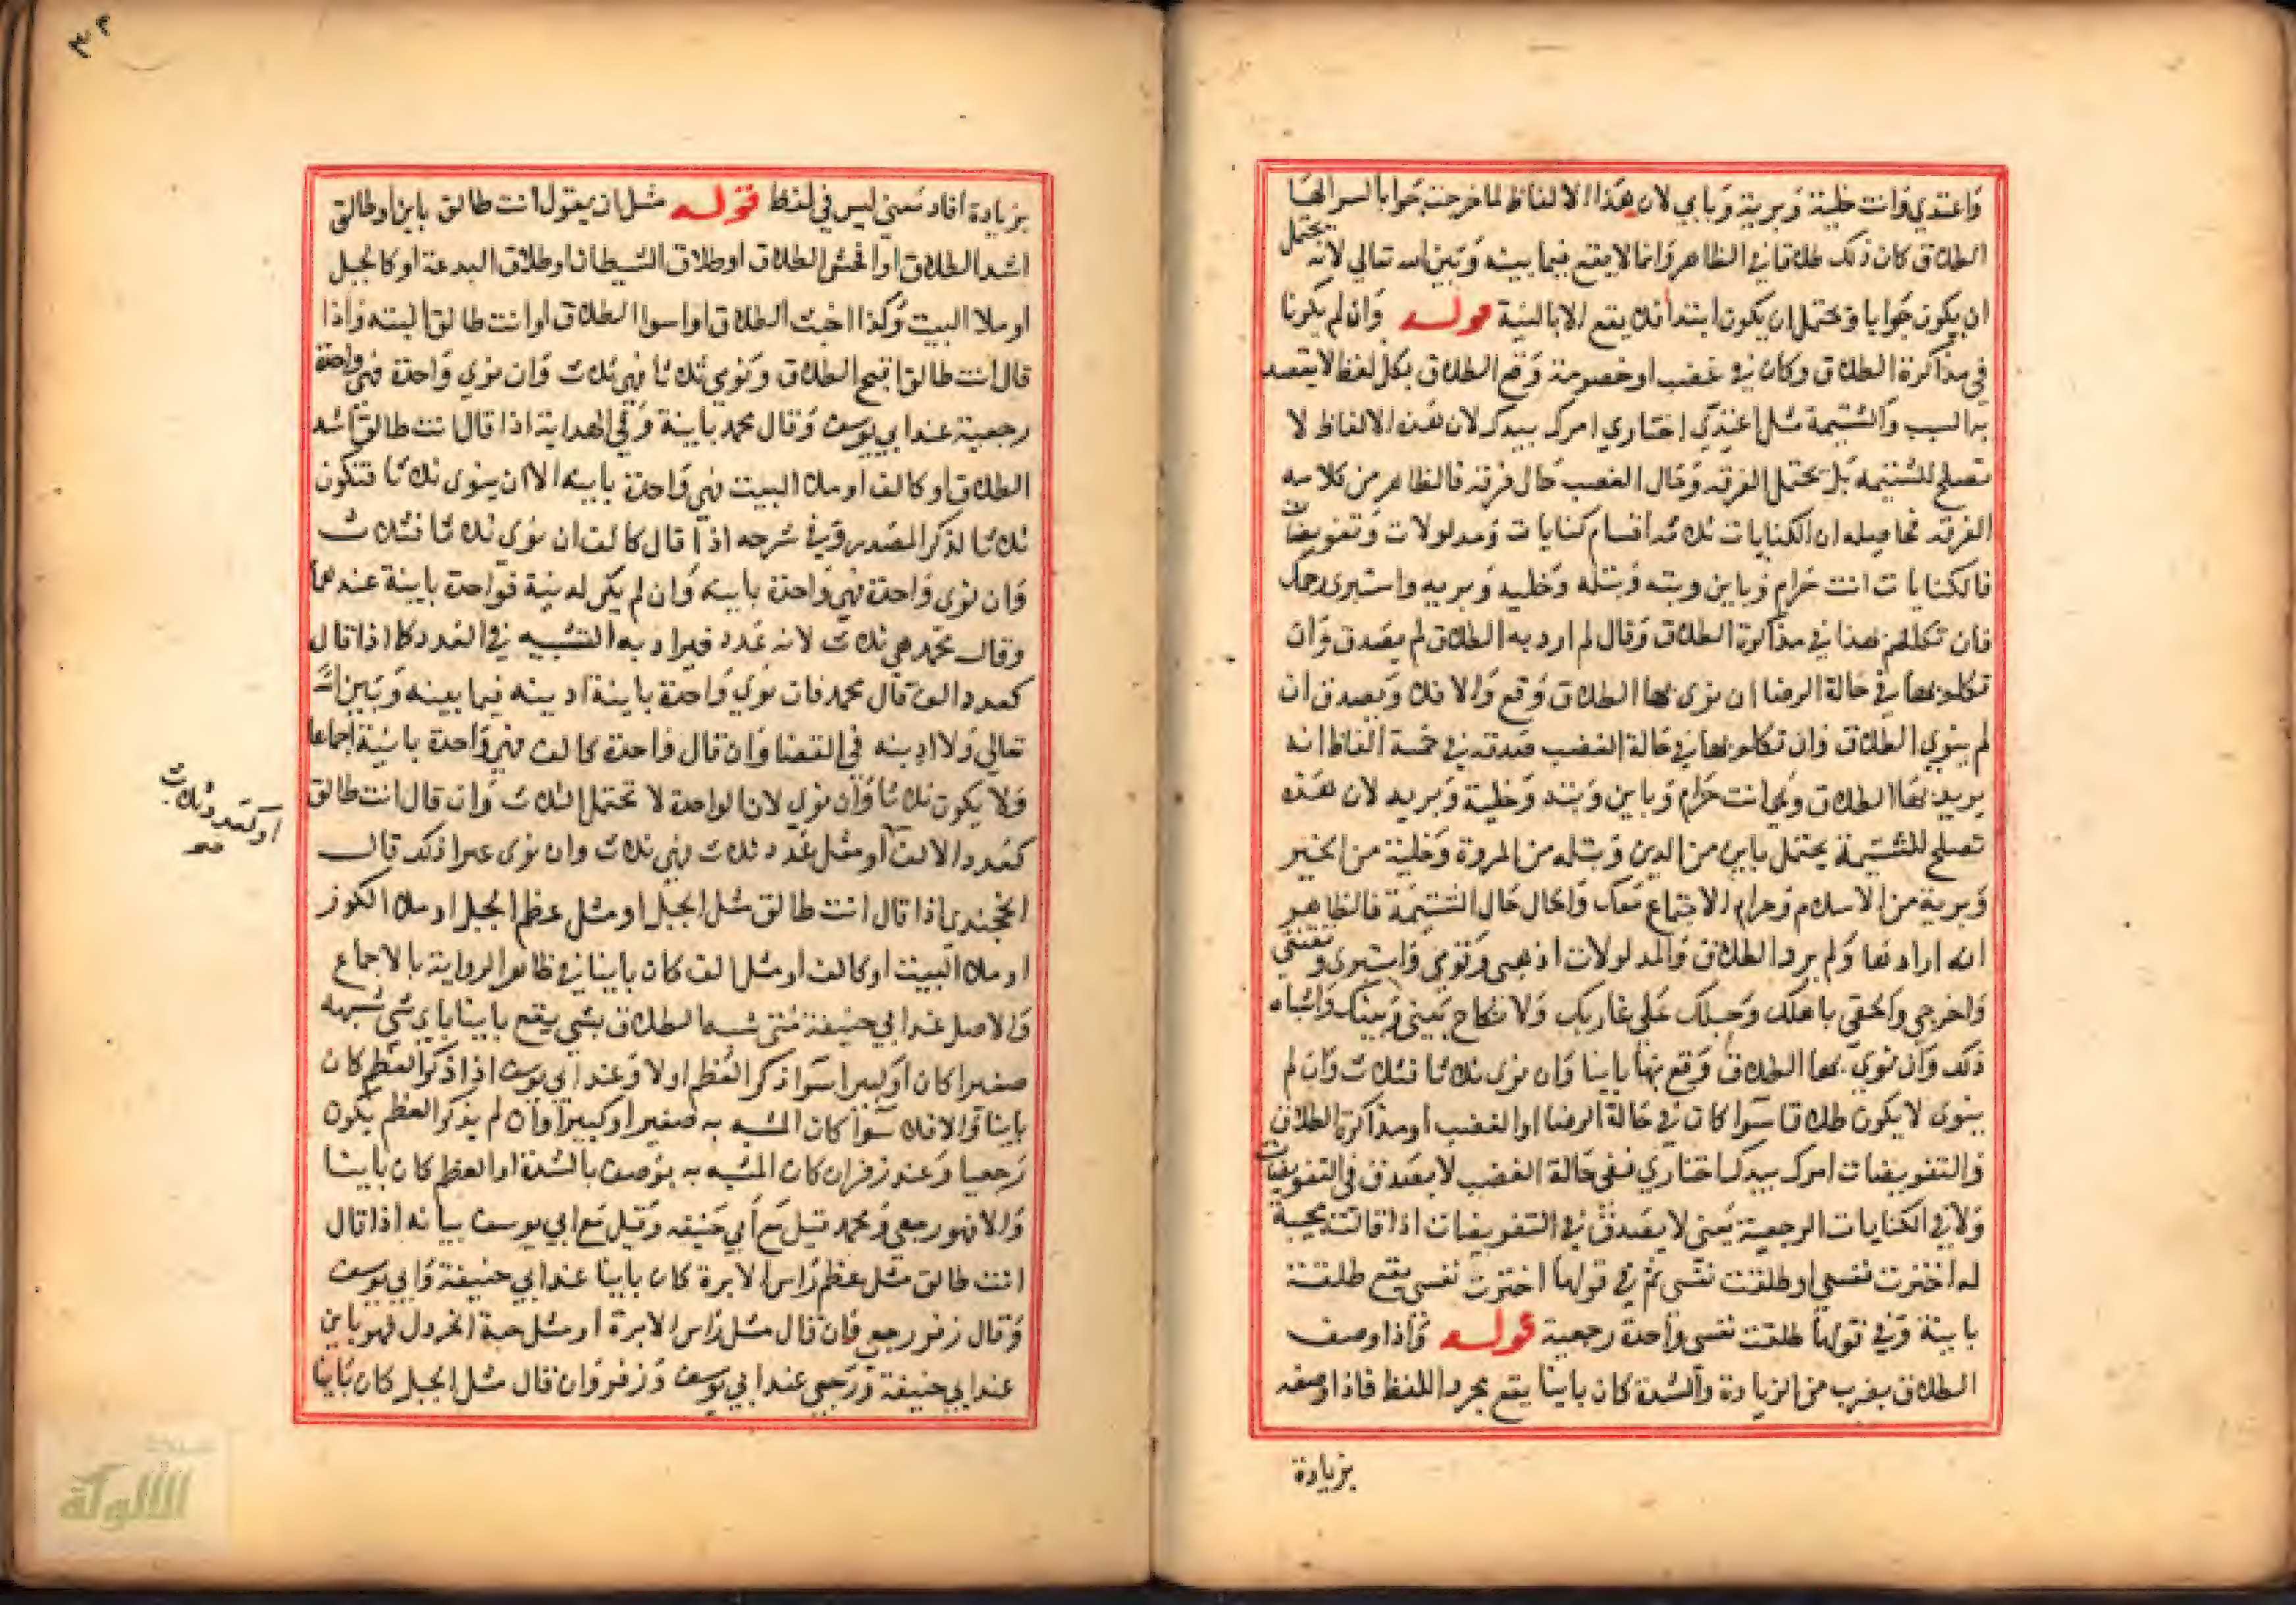 واعتدي وانت خلية وبرية وباين لان هذا الالفاظ لما خرجت جوابا لسوالها
الطلاق كان ذلك طلاقا في الظاهر وانما لا يقع فيما بينه وبين الله تعالي لانه يحتمل
ان يكون جوابا ويحتمل ان يكون ابتدا فلا يقع الا بالنية قوله وان لم يكونا
في مذاكرة الطلاق وكان في غضب او خصومة وقع الطلاق بكل لفظ لا يقصد
به السب والشتيمة مثل اعتدي اختاري امرك بيدك لان هذه الالفاظ لا
تصلح للشتيمة بل يحتمل الفرقه وحال الغضب حال فرقه فالظاهر من كلامه
الفرقه فحاصله ان الكنايات ثلاثه اقسام كنايات ومدلولات وتفويضات
فالكنايات انت حرام وباين وبته وبتله وخليه وبريه واستبري رحمك
فان تكلم بهذا في مذاكرة الطلاق وقال لم ارد به الطلاق لم يصدق وان
تكلم بها في حالة الرضا ان نوى بها الطلاق وقع والا فلا ويصدق ان
لم ينوي الطلاق وان تكلم بها في حالة الغضب صدقه في خمسة الفاظ انه
يريد بها الطلاق وهي انت حرام وباين وبته وخلية وبريه لان هذه
تصلح للشتيمة يحتمل باين من الدين وبتله من المروة وخلية من الخير
وبرية من الاسلام وحرام الاجتماع معك والحال حال الشتيمة فالظاهر
انه اراد بها ولم يرد الطلاق والمدلولات اذهبي وقومي واستبري وتقنعي
واخرجي والحقي باهلك وحبلك علي غاربك ولا نكاح بيني وبينك واشباه
ذلك وان نوي بها الطلاق وقع بها باينا وان نوى ثلاثا فثلاث وان لم
ينوى لا يكون طلاقا سوا كان في حالة الرضا او الغضب او مذاكرة الطلاق
والتفويضات امرك بيدك اختاري ففي حالة الغضب لا يصدق في التفويضات
ولا في الكنايات الرجعية يعني لا يصدق في التفويضات اذا قالت مجيبة
له اخترت نفسي او طلقت نفسي ثم في قولها اخترت نفسي يقع طلقة
باينة وفي قولها طلقت نفسي واحدة رجعية قوله واذا وصف
الطلاق بضرب من الزيادة والشدة كان باينا يقع بمجرد اللفظ فاذا وصفه
بزيادة
بزيادة افاد معني ليس في لفظ قوله مثل ان يقول انت طالق باين او طالق
اشد الطلاق او افحش الطلاق او طلاق الشيطان او طلاق البدعة او كالجبل
او ملا البيت وكذا اخبث الطلاق او اسوا الطلاق او انت طالق البته واذا
قال انت طالق اقبح الطلاق ونوي ثلاثا فهي ثلاث وان نوي واحدة فهي واحدة
رجعية عند ابي يوسف وقال محمد باينة وفي الهداية اذا قال انت طالق اشد
الطلاق او كالف او ملا البيت فهي واحدة باينه الا ان ينوى ثلاثا فتكون
ثلاثا لذكر المصدر وفي شرحه اذا قال كالف ان نوى ثلاثا فثلاث
وان نوى واحدة فهي واحدة باينه وان لم يكن له نية فواحدة باينة عندهما
وقال محمد هي ثلاث لانه عدد فيراد به التشبيه في العدد كما اذا قال
كعدد الف قال محمد فان نوي واحدة باينة ادينه فيما بينه وبين الله
تعالي ولا ادينه في القضا وان قال واحدة كالف فهي واحدة باينة اجماعا
ولا يكون ثلاثا وان نوي لان الواحدة لا تحتمل الثلاث وان قال انت طالق
كعدد الالف او مثل عدد ثلاث فهي ثلاث وان نوى غير ذلك قال
او كعدد ثلاث
صح
الخجندي اذا قال انت طالق مثل الجبل او مثل عظم الجبل او ملا الكوز
او ملا البيت او كالف او مثل الف كان باينا في ظاهر الرواية بالاجماع
والاصل عند ابي حنيفة متى شبه الطلاق بشي يقع باينا باي شي شبهه
صغيرا كان او كبيرا سوا ذكر العظم او لا وعند ابي يوسف اذا ذكر العظم كان
باينا والا فلا سوا كان المشبه به صغيرا او كبيرا وان لم يذكر العظم يكون
رجعيا وعند زفر ان كان المشبه به يوصف بالشدة او العظم كان باينا
والا فهو رجعي ومحمد قيل مع ابي حنيفه وقيل مع ابي يوسف بيانه اذا قال
انت طالق مثل عظم راس الابرة كان باينا عند ابي حنيفة وابي يوسف
وقال زفر رجعي فان قال مثل راس الابرة او مثل حبة الخردل فهو باين
عند ابي حنيفة ورجعي عند ابي يوسف وزفر وان قال مثل الجبل كان باينا
الألوكة